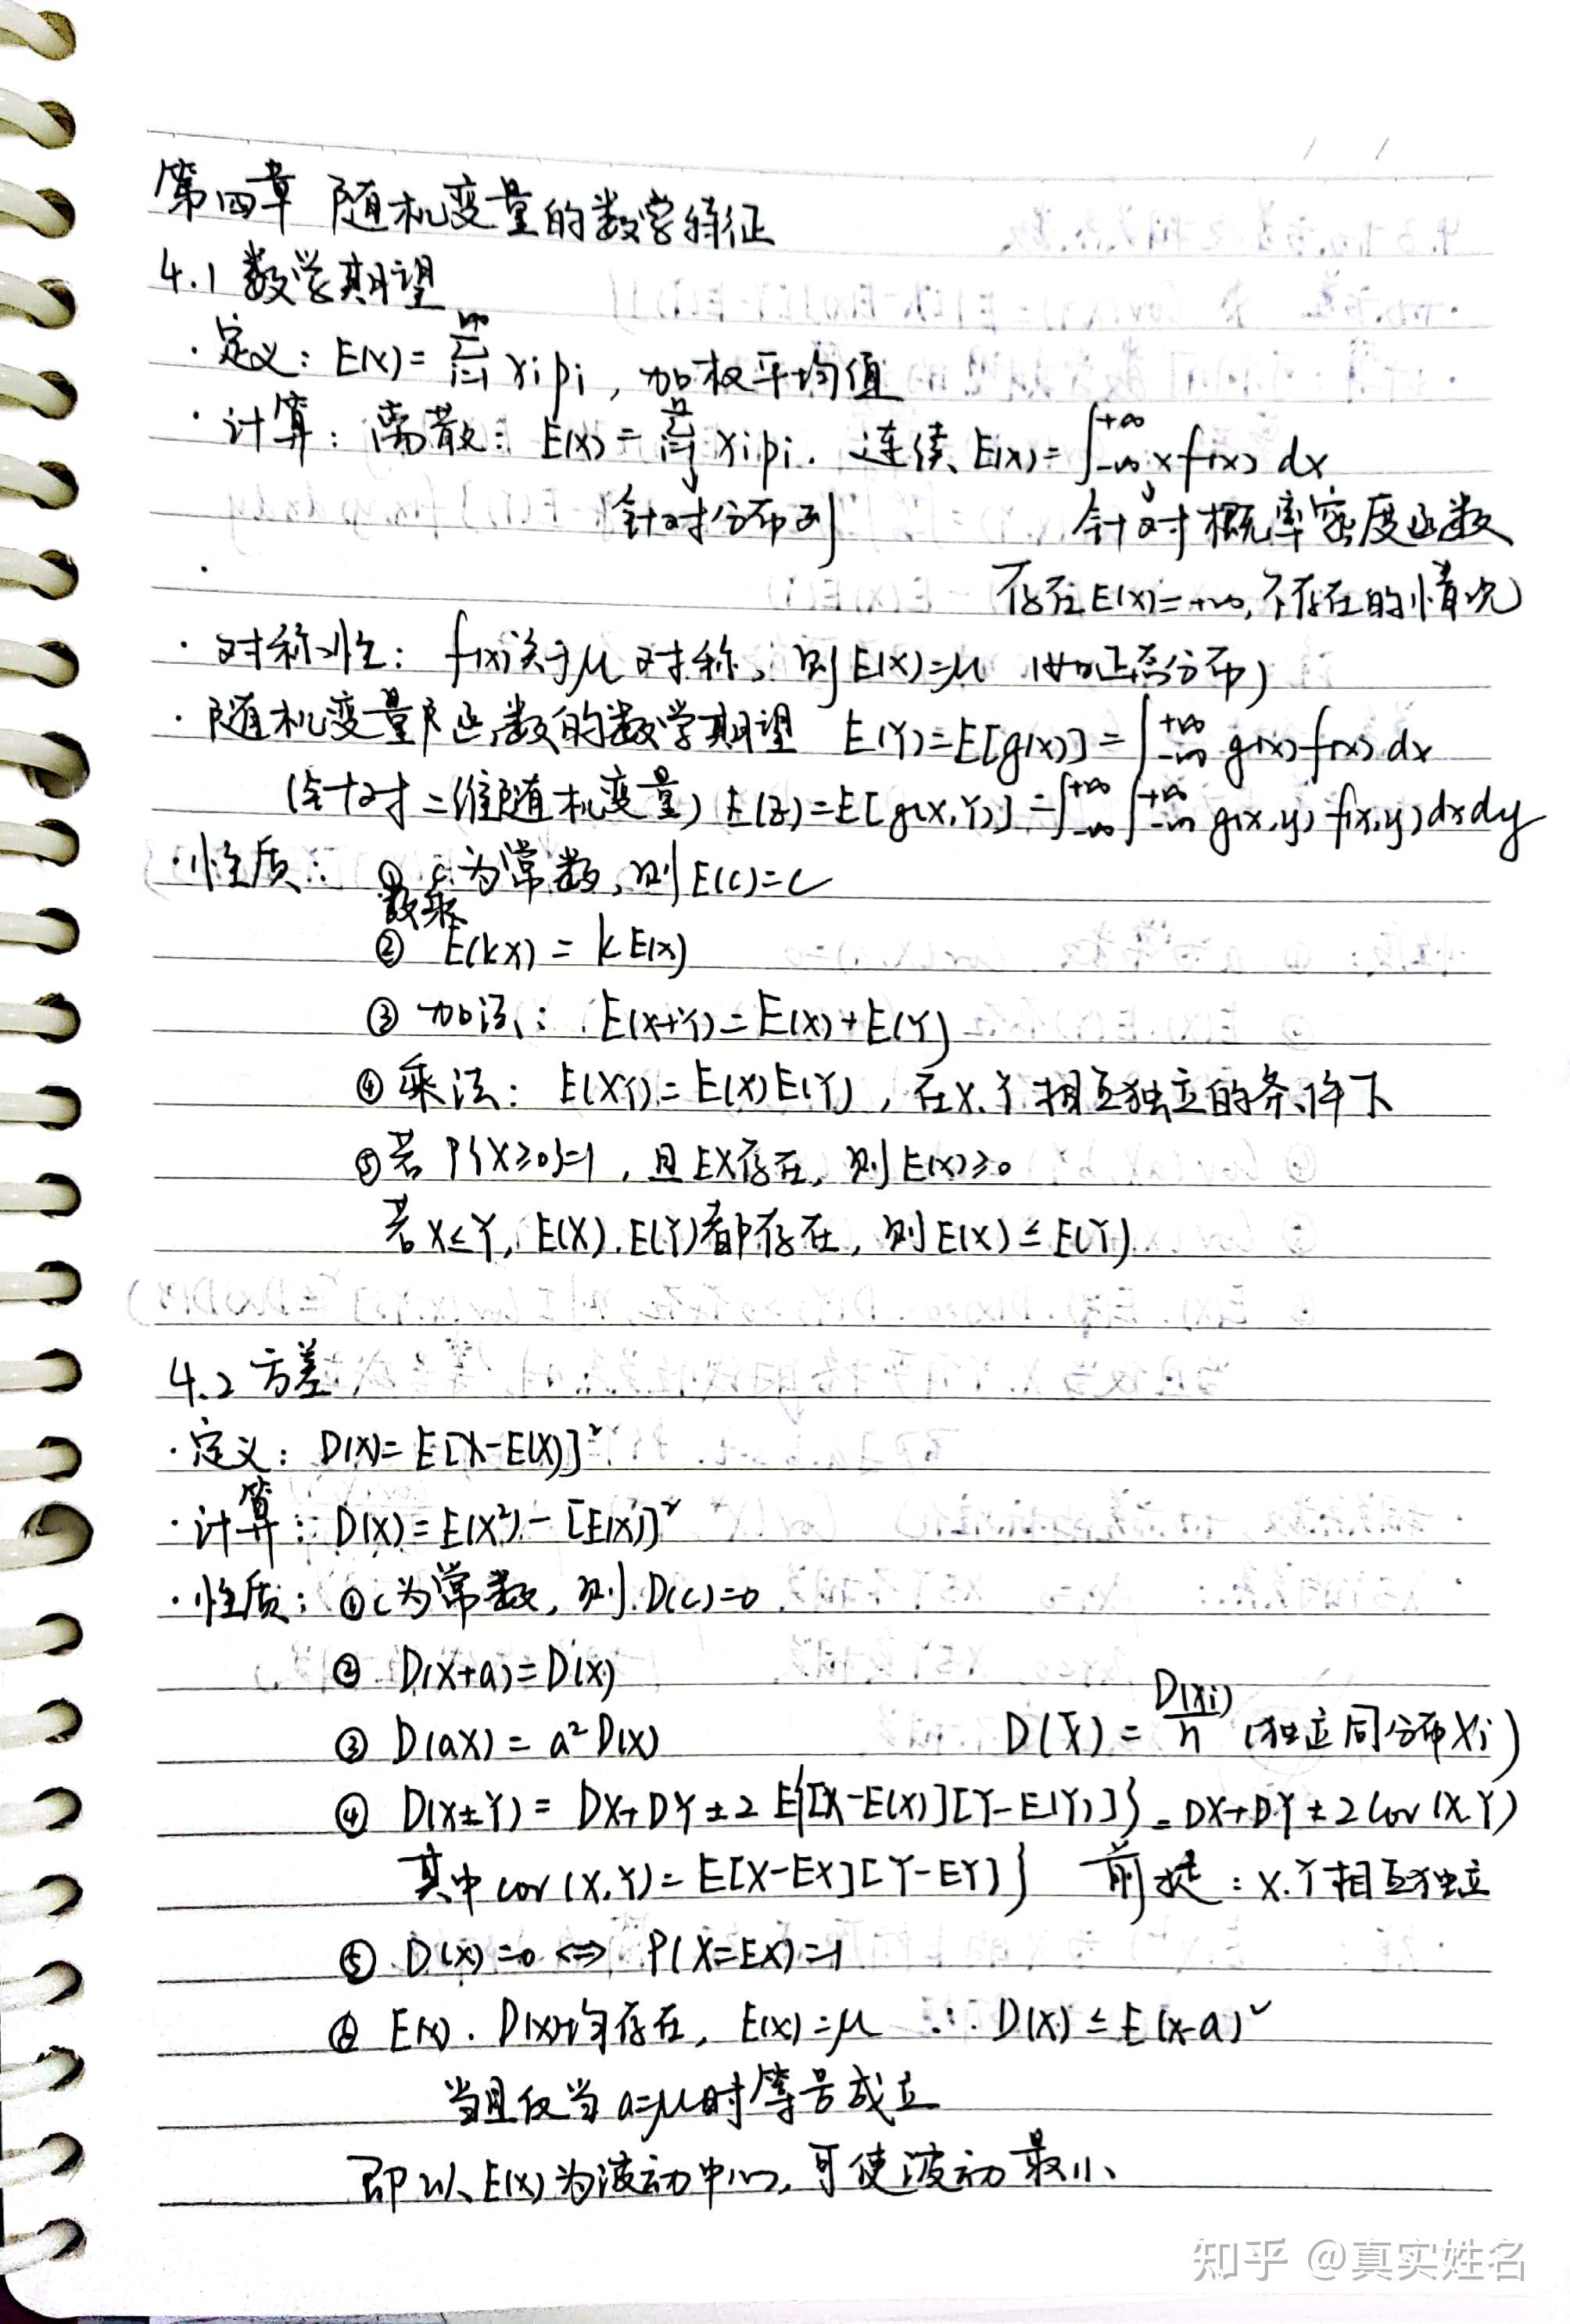 第四章 随机变量的数学特征
4.1 数学期望
·定义：E(X)=∑_{i=1}^{+∞} xipi，加权平均值
·计算：离散：E(X)=∑_{i=1}^{n} xipi. 连续、E(X)=∫_{-∞}^{+∞} xf(x)dx
针对分布列 针对概率密度函数
存在E(X)=+∞,不存在的情况)
·对称性：f(x)关于μ对称，则E(X)=μ (如正态分布)
·随机变量函数的数学期望 E(Y)=E[g(x)]=∫_{-∞}^{+∞} g(x)f(x)dx
(针对二维随机变量) E(Z)=E[g(X,Y)]=∫_{-∞}^{+∞}∫_{-∞}^{+∞} g(x,y)f(x,y)dxdy
·性质：① c为常数,则E(C)=C
数乘
② E(kX)=kE(X)
③ 加法：E(X+Y)=E(X)+E(Y)
④ 乘法：E(XY)=E(X)E(Y)，在X.Y相互独立的条件下
⑤ 若P{X≥0}=1，且EX存在，则E(X)≥0
若X≤Y，E(X).E(Y)都存在，则E(X)≤E(Y)
4.2 方差
·定义：D(X)=E[X-E(X)]²
·计算：D(X)=E(X²)-[E(X)]²
·性质：①c为常数，则D(C)=0
② D(X+a)=D(X)
③ D(aX)=a²D(X) D(X̄)=D(Xi)/n (独立同分布Xi)
④ D(X±Y)=DX+DY±2E{[X-E(X)][Y-E(Y)]}=DX+DY±2Cov(X,Y)
其中cov(X,Y)=E[X-EX][Y-EY]} 前提：X.Y相互独立
⑤ D(X)=0 ⇔ P(X=EX)=1
⑥ E(X).D(X)均存在，E(X)=μ ∴ D(X)≤E(X-a)²
当且仅当a=μ时等号成立
即以E(X)为波动中心，可使波动最小
知乎 @真实姓名